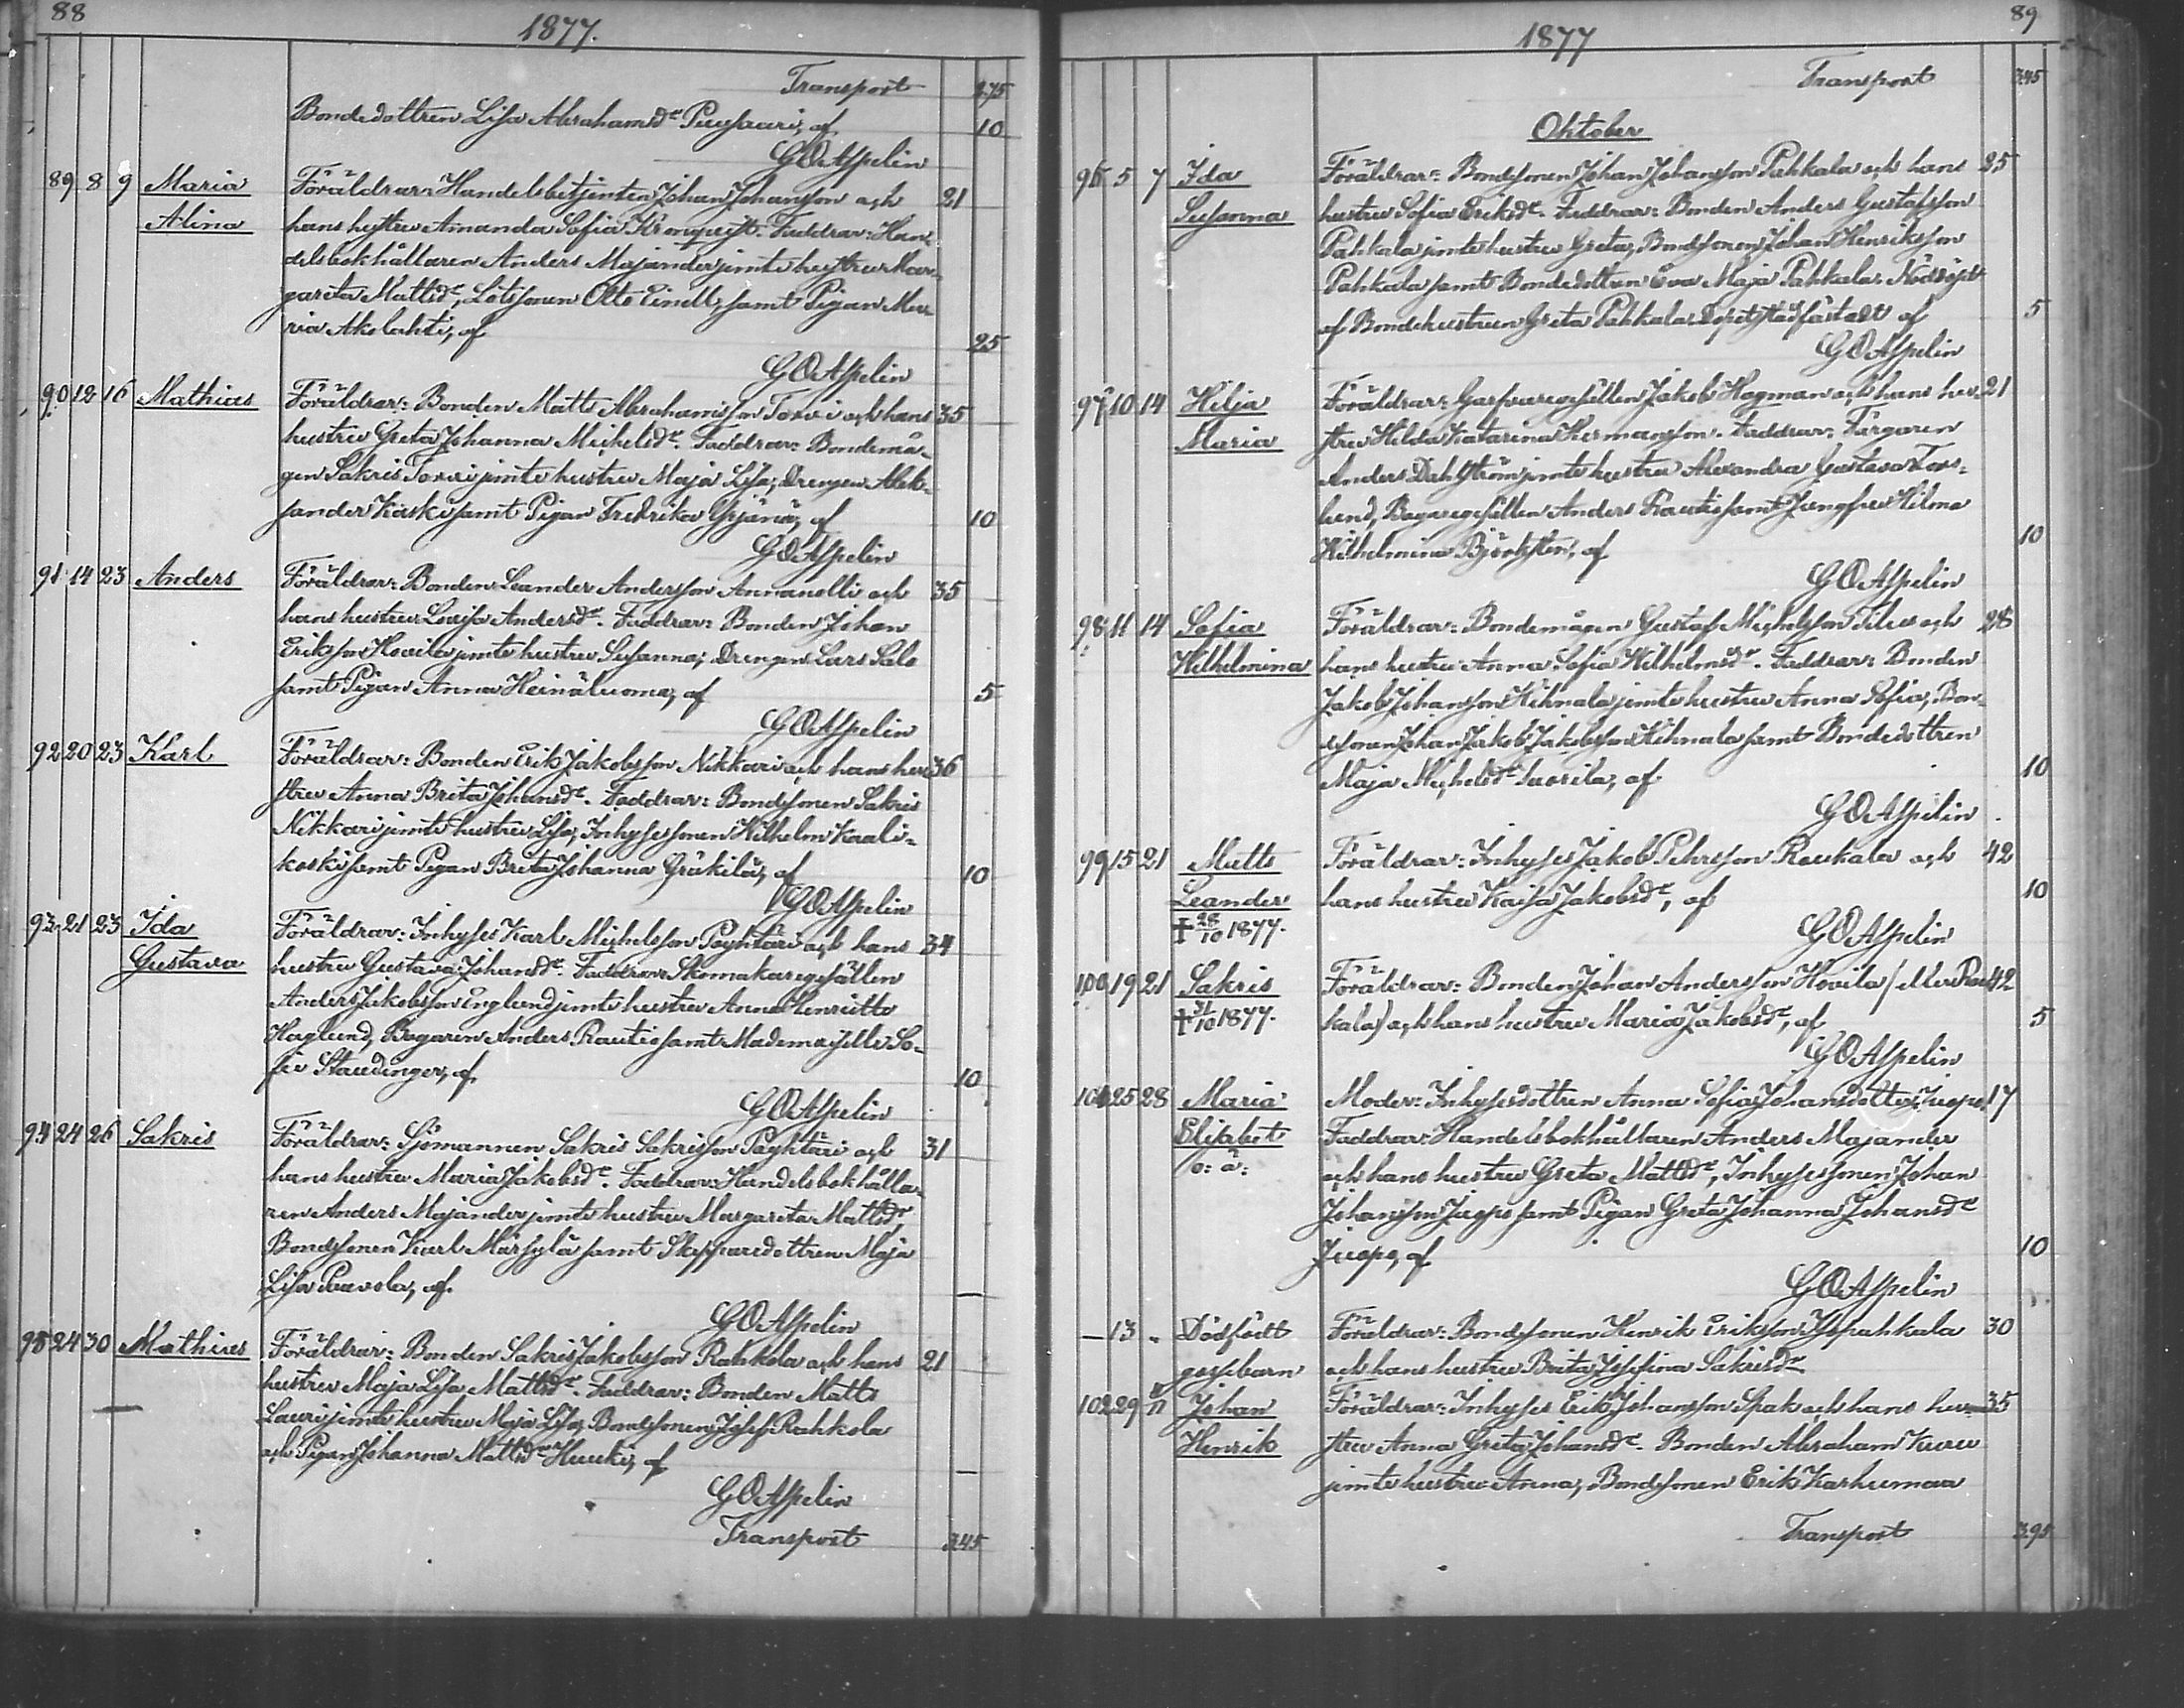 88
1877.
Transport 275
Bondedottren Lisa Abrahamsdr Puusaari, af 10
GOAspelin
89 8 9 Maria Föräldrar: Handelsbetjenten Johan Johansson och 21
Alina hans hustru Amanda Sofia Kronqvist. Faddrar: Han-
delsbokhållaren Anders Majander jemte hustru Mar-
gareta Mattsdr, Lotssonen Otto Eindll, samt Pigan Ma-
ria Akolahti, af 25
GOAspelin
90 12 16 Mathias Föräldrar: Bonden Matts Abrahamsson Torvi och hans 35
hustru Greta Johanna Michelsdr. Faddrar: Bondemå-
gen Sakris Torvi jemte hustru Maja Lisa, Drengen Alek-
sander Kaski samt Pigan Fredrika Yrjänä, af 10
GOAspelin
91 14 23 Anders Föräldrar: Bonden Leander Andersson Annanolli och 35
hans hustru Lovisa Andersdr. Faddrar: Bonden Johan
Eriksson Hovila jemte hustru Susanna; Drengen Lars Salo
samt Pigan Anna Heinäluoma, af 5
GOAspelin
92 20 23 Karl Föräldrar: Bonden Erik Jakobsson Nikkari och hans hu- 36
stru Anna Brita Johansdr. Faddrar: Bondsonen Sakris
Nikkari jemte hustru Lisa, Inhysessonen Wilhelm Kaali-
koski samt Pigan Brita Johanna Yräkilä, af 10
GOAspelin
93 21 23 Ida Föräldrar: Inhyses Karl Michelsson Pöyhtäri och hans 34
Gustava hustru Gustava Johansdr. Faddrar: Skomakaregesällen
Anders Jakobsson Englund jemte hustru Anna Henriette
Haglund, Bagaren Anders Rautio samt Mademoiselle So-
fie Staudinger, af 10
GOAspelin
94 24 26 Sakris Föräldrar: Sjömannen Sakris Sakrisson Pöyhtäri och 31
hans hustru Maria Jakobsdr. Faddrar: Handelsbokhålla-
ren Anders Majander jemte hustru Margareta Mattsdr,
Bondsonen Karl Märsylä samt Skepparedottren Maja
Lisa Paavola, af —
GOAspelin
95 24 30 Mathias Föräldrar: Bonden Sakris Jakobsson Rahkola och hans 21
hustru Maja Lisa Mattsdr. Faddrar: Bonden Matts
Lauri jemte hustru Maja Lisa, Bondsonen Josef Rahkola
och Pigan Johanna Mattsdr Huuki, af —
GOAspelin
Transport 345
89
1877
Transport 345
Oktober
96 5 7 Ida Föräldrar: Bondsonen Johan Johansson Pahkala och hans 25
Susanna hustru Sofia Eriksdr. Faddrar: Bonden Anders Gustafsson
Pahkala jemte hustru Greta, Bondsonen Johan Henriksson
Pahkala samt Bondedottren Eva Maja Pahkala. Nöddöpt
af Bondehustrun Greta Pahkala. Dopet stadfästadt af 5
GOAspelin
97 10 14 Hilja Föräldrar: Garfvaregesällen Jakob Hagman och hans hu- 21
Maria stru Hilda Katarina Hermansson. Faddrar: Färgaren
Anders Dahlström jemte hustru Alexandra Gustava Fors-
lund, Bagaregesällen Anders Rautio samt Jungfru Hilma
Wilhelmina Björksten, af 10
GOAspelin
98 11 14 Sofia Föräldrar: Bondemågen Gustaf Michelsson Tilus och 28
Wilhelmina hans hustru Anna Sofia Wilhelmsdr. Faddrar: Bonden
Jakob Johansson Kihnala jemte hustru Anna Sofia, Bon-
dsonen Johan Jakob Jakobsson Kihnala samt Bondedottren
Maja Michelsdr Saorila, af 10
GOAspelin
99 15 21 Matts Föräldrar: Inhyses Jakob Pehrsson Raukala och 42
Leander hans hustru Kaisa Jakobsdr, af 10
† 28/10 1877. GOAspelin
100 19 21 Sakris Föräldrar: Bonden Johan Andersson Hovila (eller Rau- 42
† 31/10 1877. kala) och hans hustru Maria Jakobsdr, af 5
GOAspelin
101 25 28 Maria Moder: Inhysesdottren Anna Sofia Johansdotter Juopo 17
Elisabet Faddrar: Handelsbokhållaren Anders Majander
o: ä: och hans hustru Greta Mattsdr, Inhysessonen Johan
Johansson Juopo samt Pigan Greta Johanna Johansdr
Juopo, af 10
GOAspelin
— 13 - Dödfödt Föräldrar: Bondsonen Henrik Eriksson Ylipahkala 30
gossebarn och hans hustru Brita Josefina Sakrisdr
102 29 4/11 Johan Föräldrar: Inhyses Erik Johansson Spak och hans hu- 35
Henrik stru Anna Greta Johansdr. Bonden Abraham Kuru
jemte hustru Anna, Bondsonen Erik Karhumaa
Transport 395